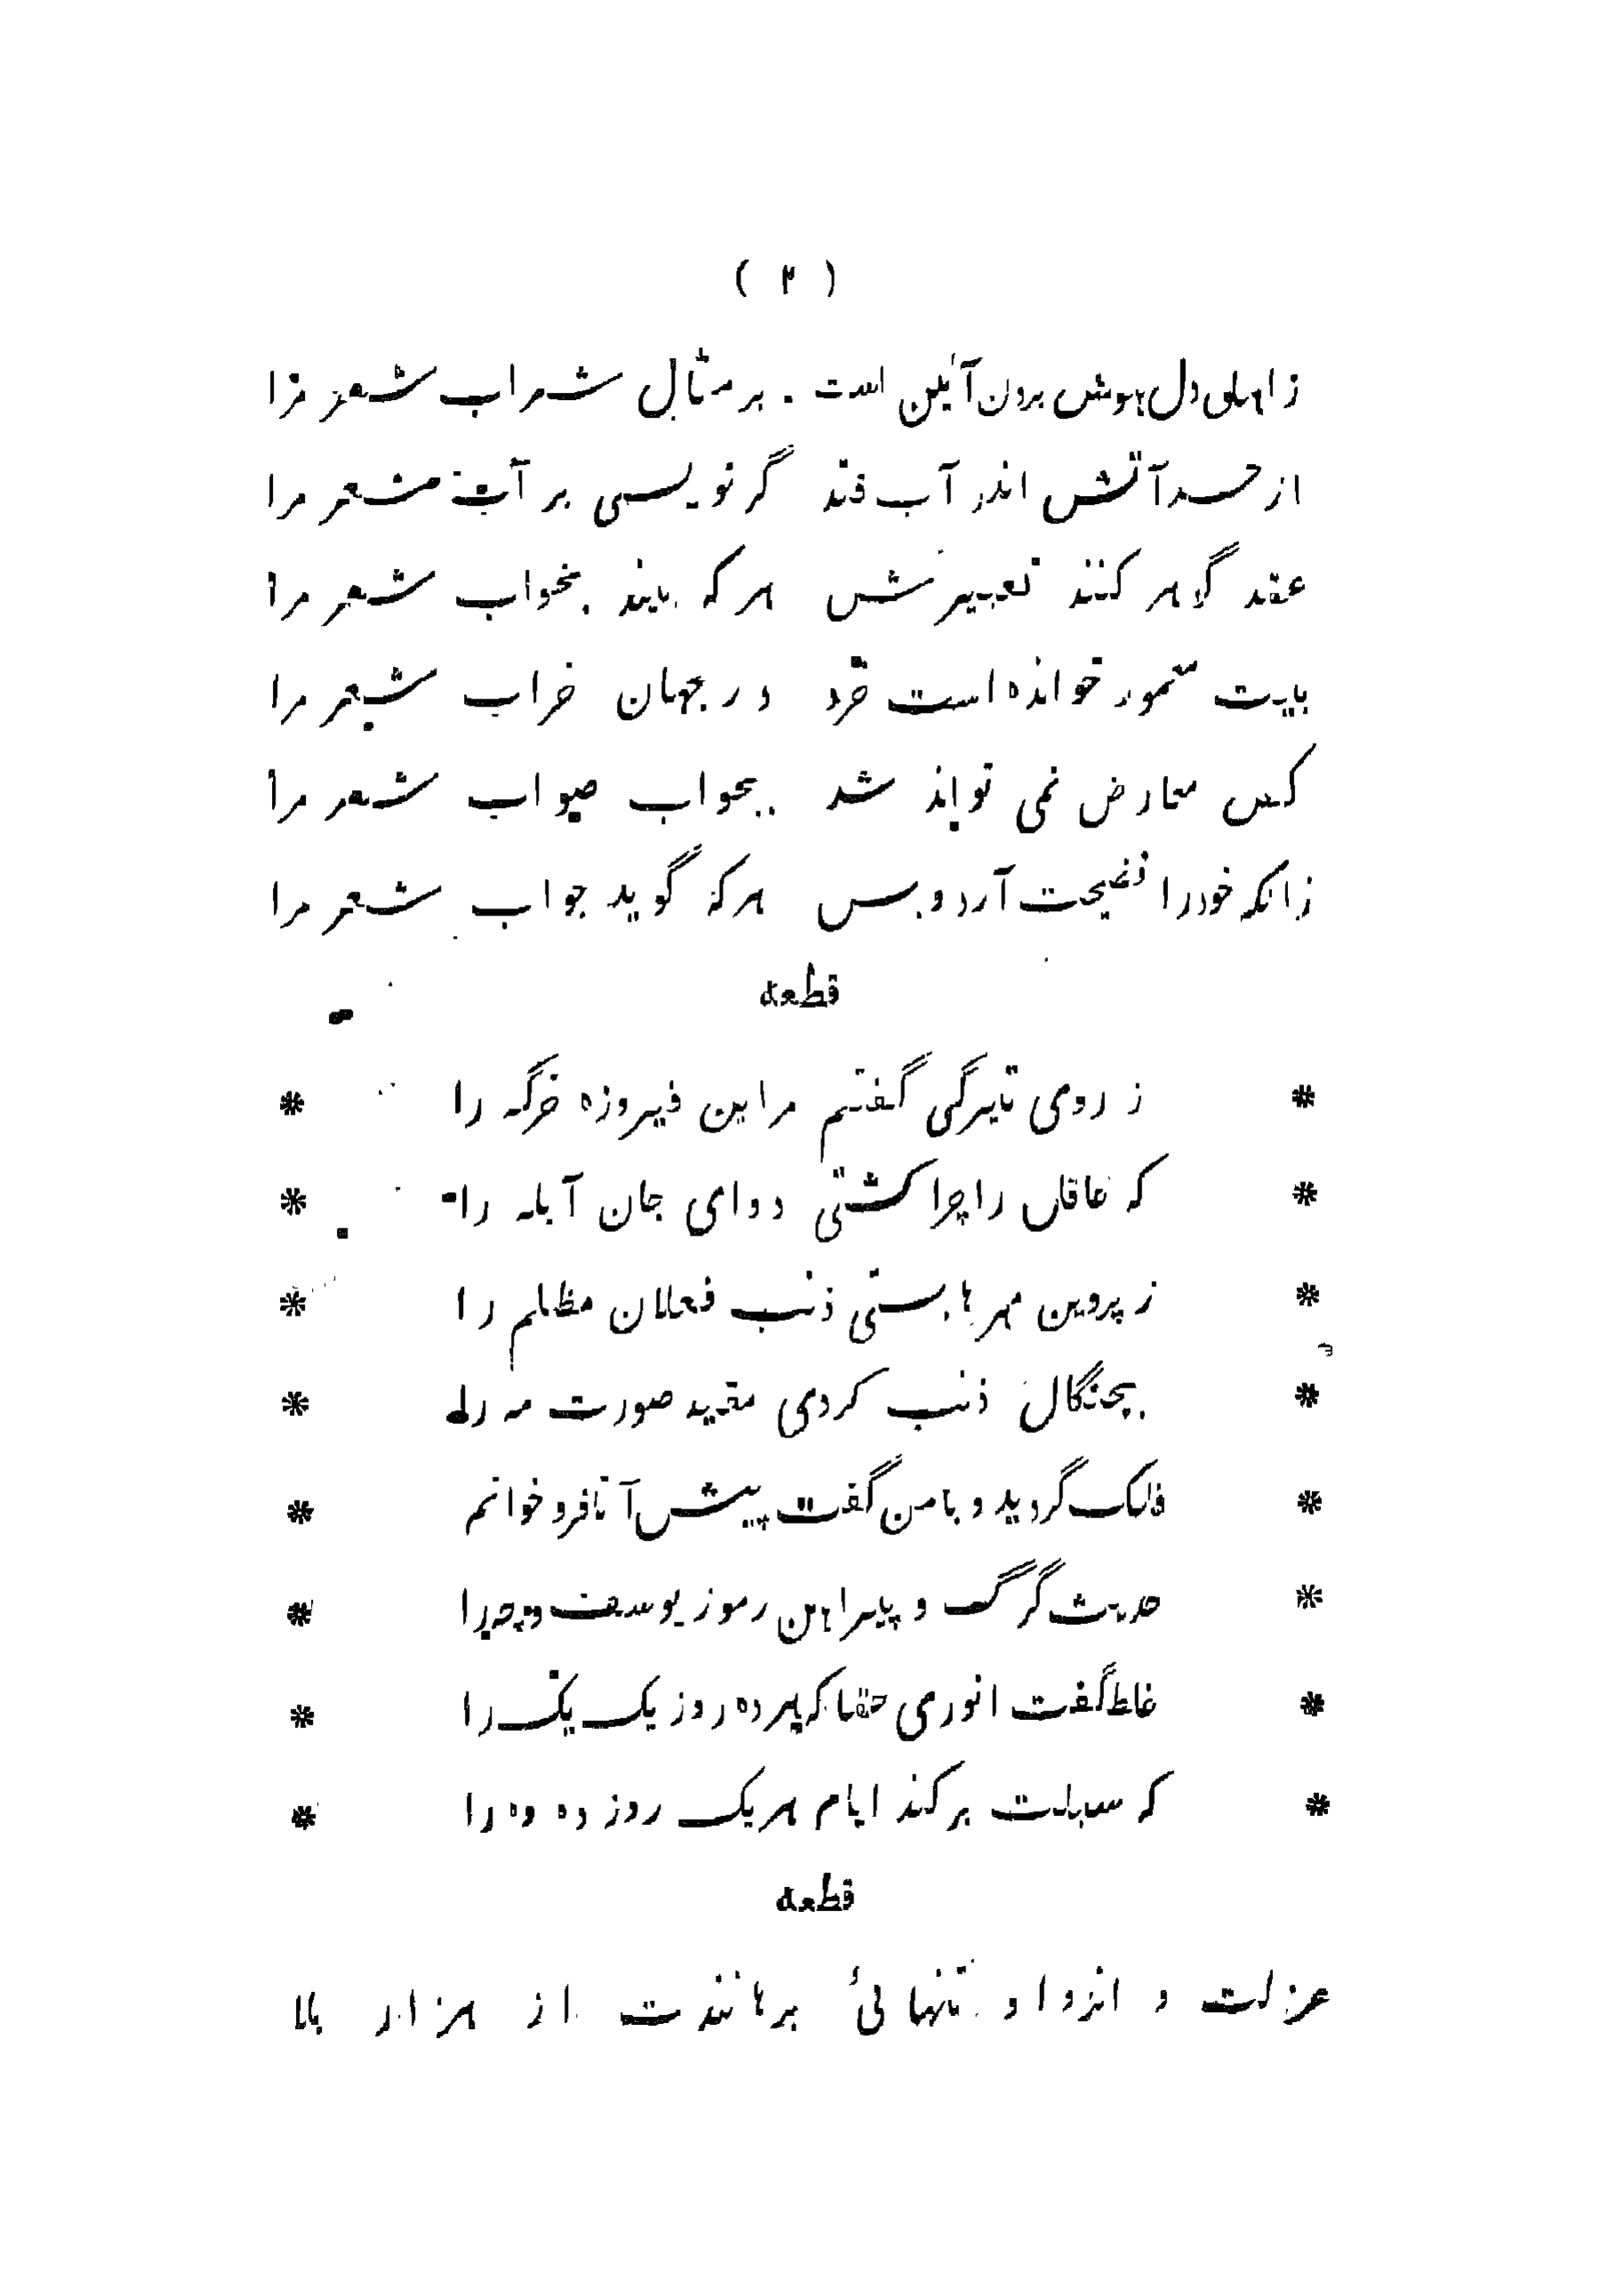 ( ۲ )
ز اهلی دل هوش بردن آئین است . بر مثال شراب شعر مرا
از حسد آتش اندر آب فتد گر نویسی بر آب شعر مرا
عقد گوهر کنند تعبیرش هر که بیند بخواب شعر مرا
بیت معمور خوانده است خرد در جهان خراب شعر مرا
کس معارض نمی تواند شد بجواب صواب شعر مرا
زانکه خود را فضیحت آرد و بس هر که گوید جواب شعر مرا
قطعه
* ز روی تیرگی گفتم مر این فیروزه خرگه را *
* که عاقل را چرا کشتی دوای جان آبله را *
* ز پروین مهرها بستی ذنب فعلان مظلم را *
* بچنگال ذنب کردی مقید صورت مه را *
* فلک گردید و با من گفت پیش آ تا فرو خوانم *
* حدیث گرگ و پیراهن رموز یوسف و چه را *
* غلط گفت انوری حقا که پرده روز یک یک را *
* که سبلت بر کند ایام هر یک روز ده ده را *
قطعه
عزلت و انزوا و تنهائی برهانندت از هزار بلا